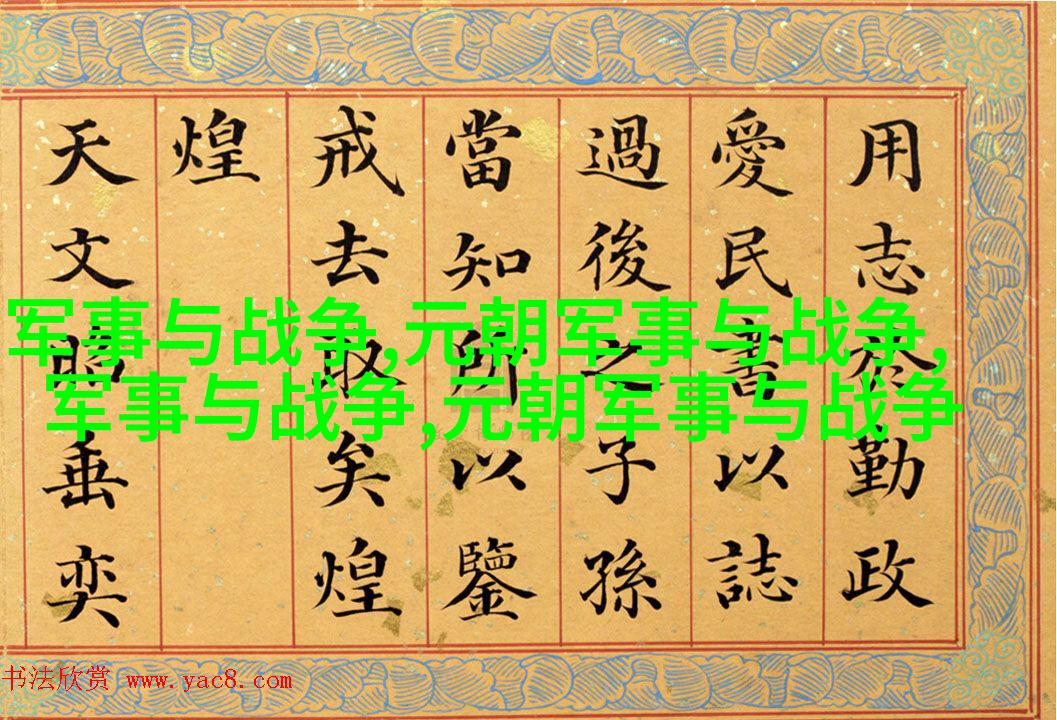 用志於勤政
愛民書以誌
過後之子孫
當知所以鑒
戒去取矣煌
煌
天文昭垂奕
军事与战争,元朝军事与战争,
军事与战争,元朝军事与战争
书法欣赏 www.yac8.com